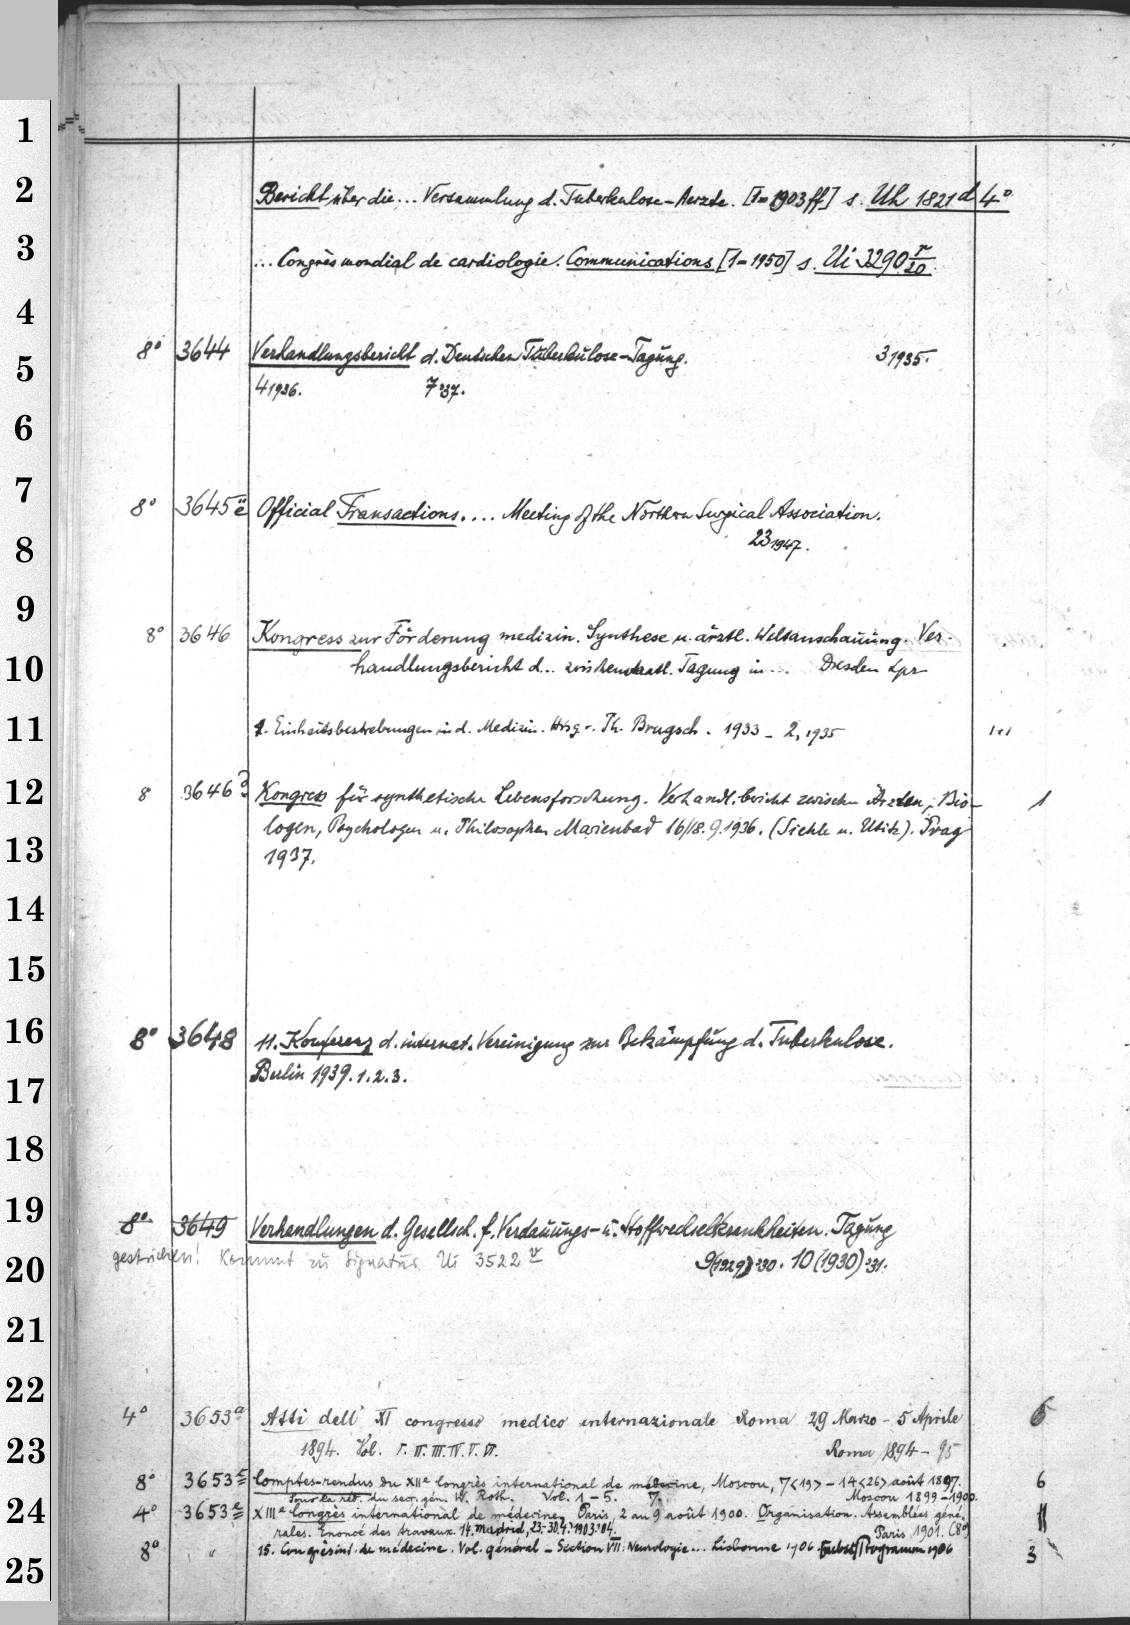 1
2 Bericht über die... Versammlung d. Tuberkulose-Aerzte. [1=1903 ff] s. Uh 1821 d 4°
3 ... Congrès mondial de cardiologie. Communications [1=1950] s. Ui 3290 r/20
4
8° 3644 Verhandlungsbericht d. Deutschen Tuberkulose-Tagung. 3 1935.
5
4 1936. 7 37.
6
7
8° 3645 ë Official Transactions.... Meeting of the Northern Surgical Association.
8 23 1947.
9
8° 3646 Kongress zur Förderung medizin. Synthese u. ärztl. Weltanschauung. Ver-
10 handlungsbericht d... zwischenstaatl. Tagung in... Dresden Lpz
11 1. Einheitsbestrebungen in d. Medizin. Hrsg. v. Th. Brugsch. 1933 - 2, 1935 1+1
12 8 3646 Kongress für synthetische Lebensforschung. Verhandl.bericht zwischen Ärzten, Bio- 1
logen, Psychologen u. Philosophen Marienbad 16/18.9.1936. ( u. Utitz). Prag
13
1937.
14
15
16 8° 3648 11. Konferenz d. internat. Vereinigung zur Bekämpfung d. Tuberkulose.
Berlin 1939. 1.2.3.
17
18
19
8° 3649 Verhandlungen d. Gesellsch. f. Verdauungs- u. Stoffwechselkrankheiten. Tagung
gestrichen! Kommt zu Signatur Ui 3522 v 9(1929) 30. 10(1930) 31.
20
21
22
4° 3653 a Atti dell' XI congresso medico internazionale Roma 29 Marzo - 5 Aprile 6
23 1894. Vol. I. II. III. IV. V. VI. Roma 1894-95
8° 3653 c Comptes-rendus du XIIe Congrès international de médecine, Moscou, 7<19> - 14<26> août 1897. 6
Sous la réd. du secr. gén. W. Roth. Vol. 1-5. 7. Moscou 1899-1900.
24 4° 3653 e XIIIe Congrès international de médecine, Paris, 2 au 9 août 1900. Organisation. Assemblées géné-
rales. Enoncé des travaux. 14. Madrid, 23.-30.4. 1903. 04. Paris 1901. (8°)
8° " 15. Congrès int. de médecine. Vol. général - Section VII: Neurologie... Lisbonne 1906 Programm 1906 3
25